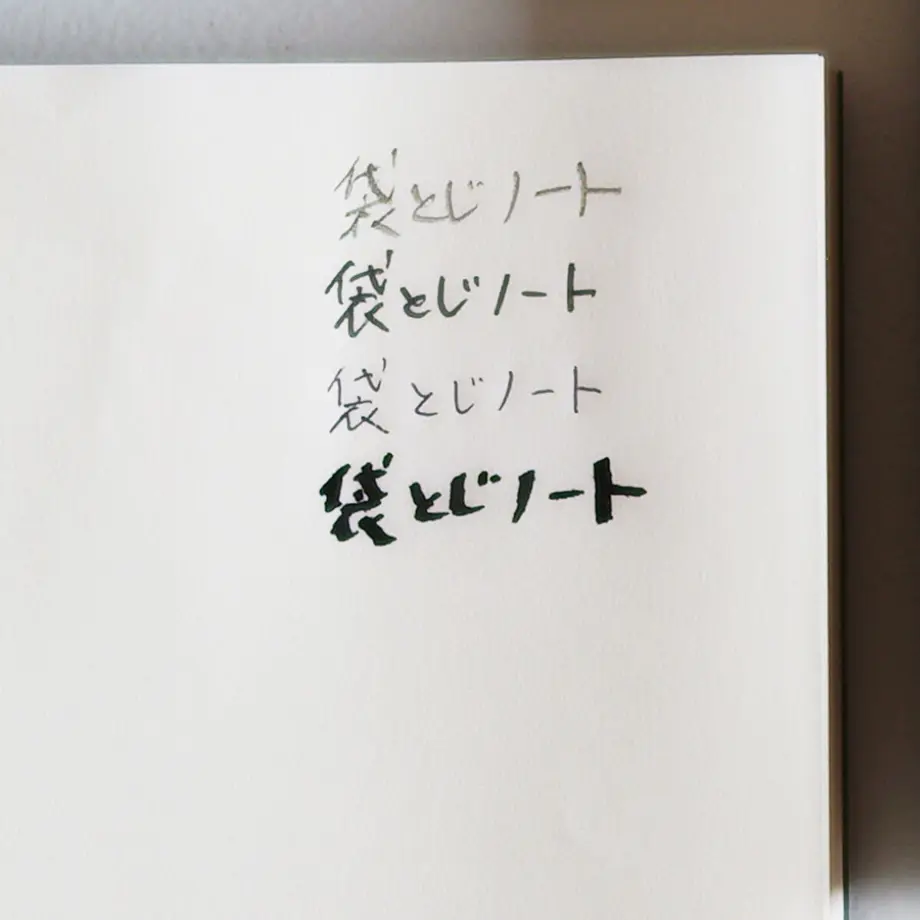 袋とじノート
袋とじノート
袋とじノート
袋とじノート